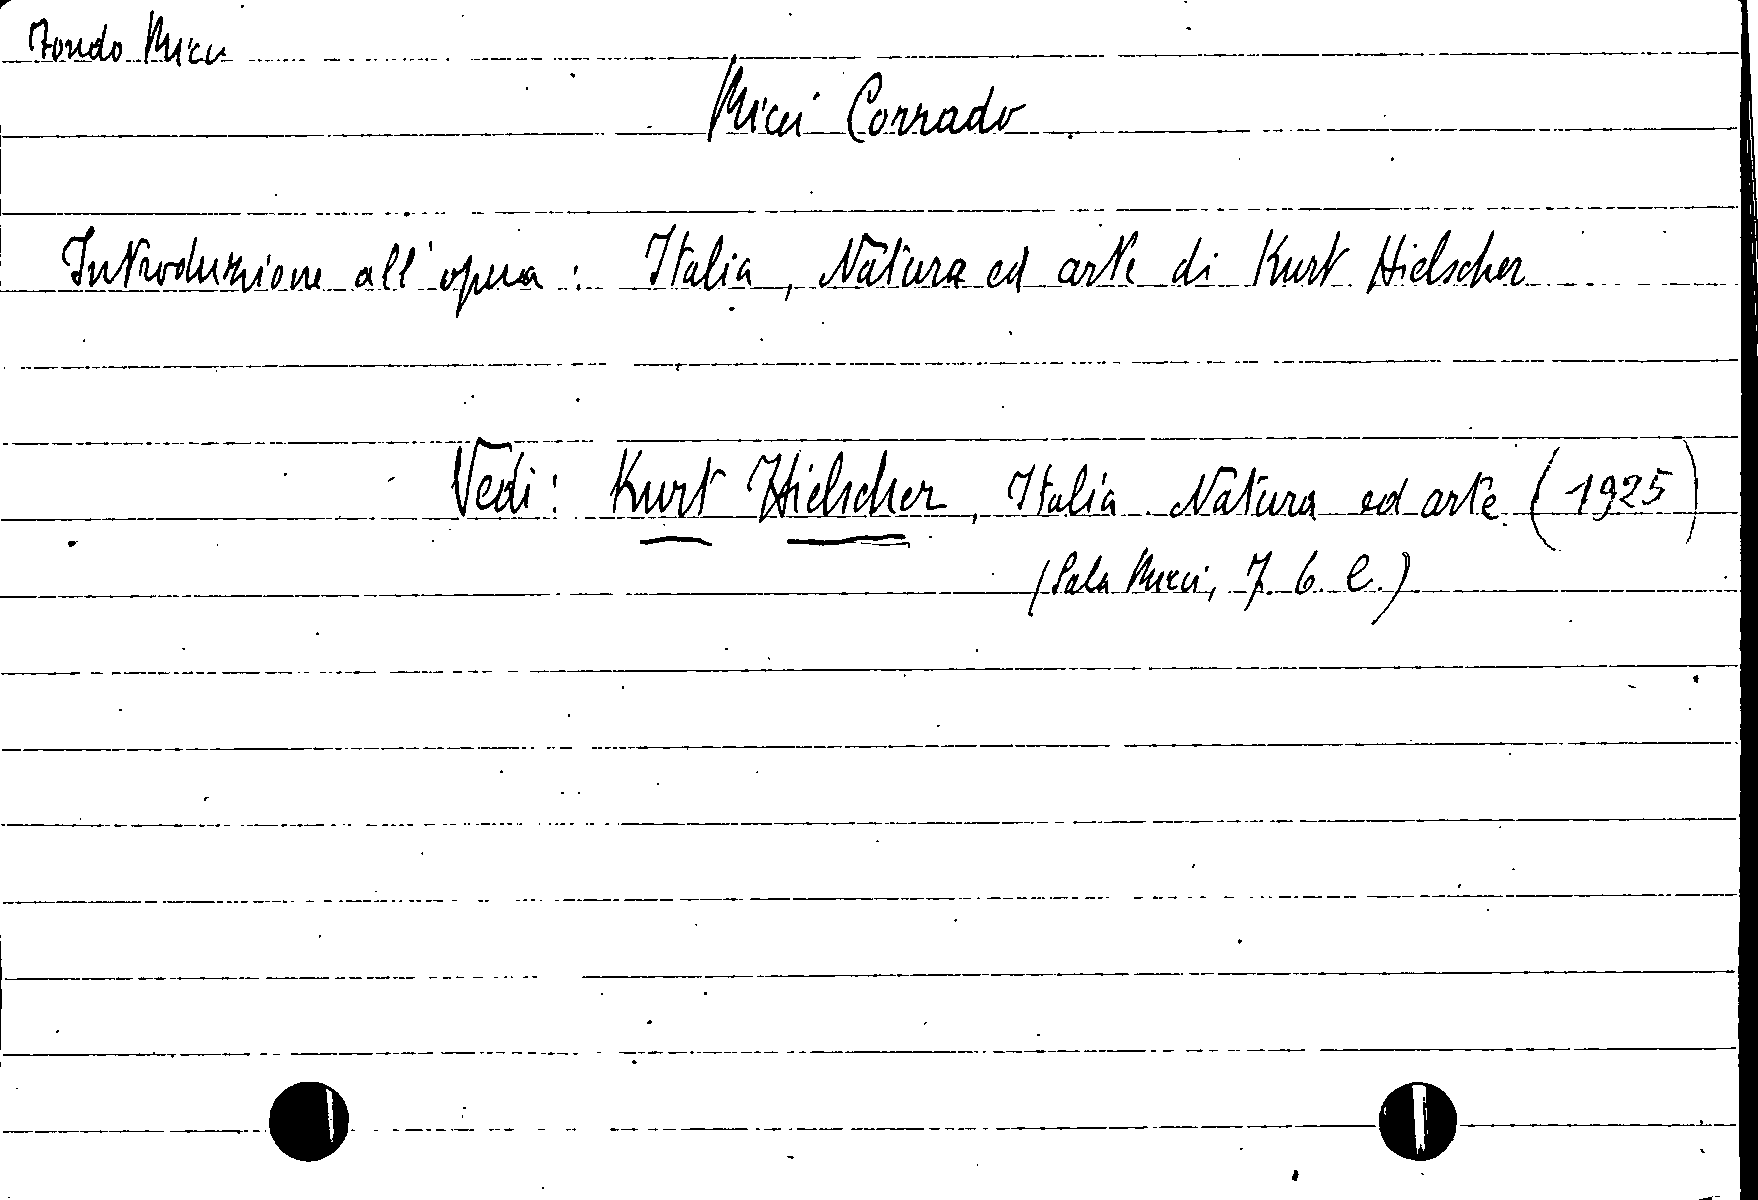 Fondo Ricci
Ricci Corrado
Introduzione all'opera: Italia, Natura ed arte di Kurt Hielscher
Vedi: Kurt Hielscher, Italia Natura ed arte (1925)
(Sala Ricci, 7. b. C.)